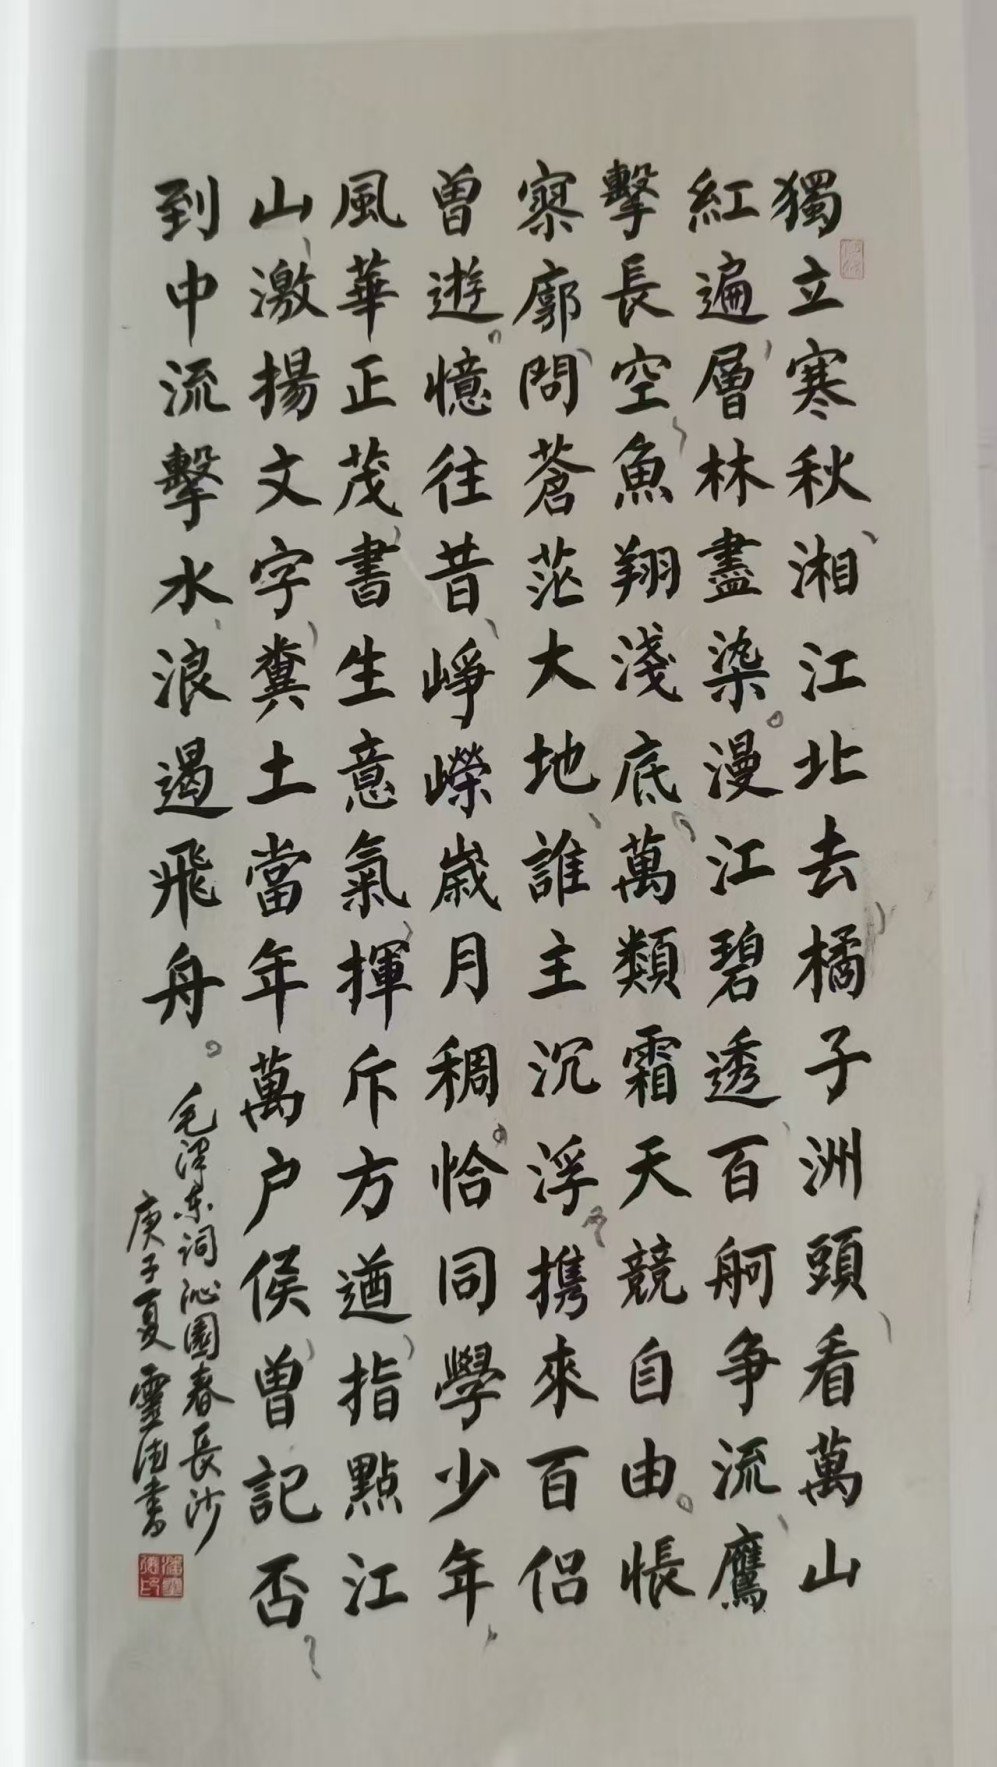 獨立寒秋、湘江北去橘子洲頭、看萬山
紅遍、層林盡染。漫江碧透、百舸争流、鷹
擊長空、魚翔淺底、萬類霜天競自由。悵
寥廓、問蒼茫大地、誰主沉浮?攜來百侣
曾遊。憶往昔、崢嶸歲月稠。恰同學少年、
風華正茂、書生意氣、揮斥方遒、指點江
山、激揚文字、糞土當年萬户侯、曾記否、
到中流擊水、浪遏飛舟。
毛澤东词沁園春長沙
庚子夏靈德書